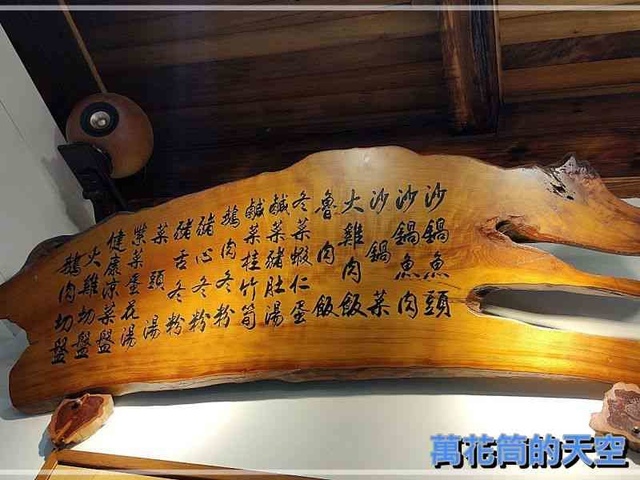 沙鍋魚頭
沙鍋魚肉
沙鍋菜
火雞肉飯
魯肉飯
冬菜蝦仁蛋
鹹菜豬肚湯
鹹菜桂竹筍
鵝肉冬粉
豬心冬粉
豬舌冬粉
菜頭湯
紫菜蛋花湯
健康涼菜盤
火雞切盤
鵝肉切盤
萬花筒的天空